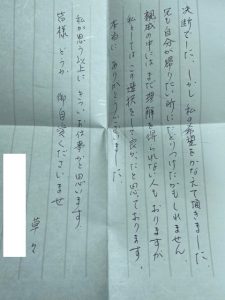 決断でした。しかし私の希望をかなえて頂きました。
兄も自分が帰りたい所にたどりつけたかもしれません。
親戚の中にはまだ理解を得られない人もおりますが
私としてはこの選択をして良かったと思っております。
本当にありがとうございました。
私が思う以上にきついお仕事かと思います。
皆様 どうか 御自愛くださいませ
草々